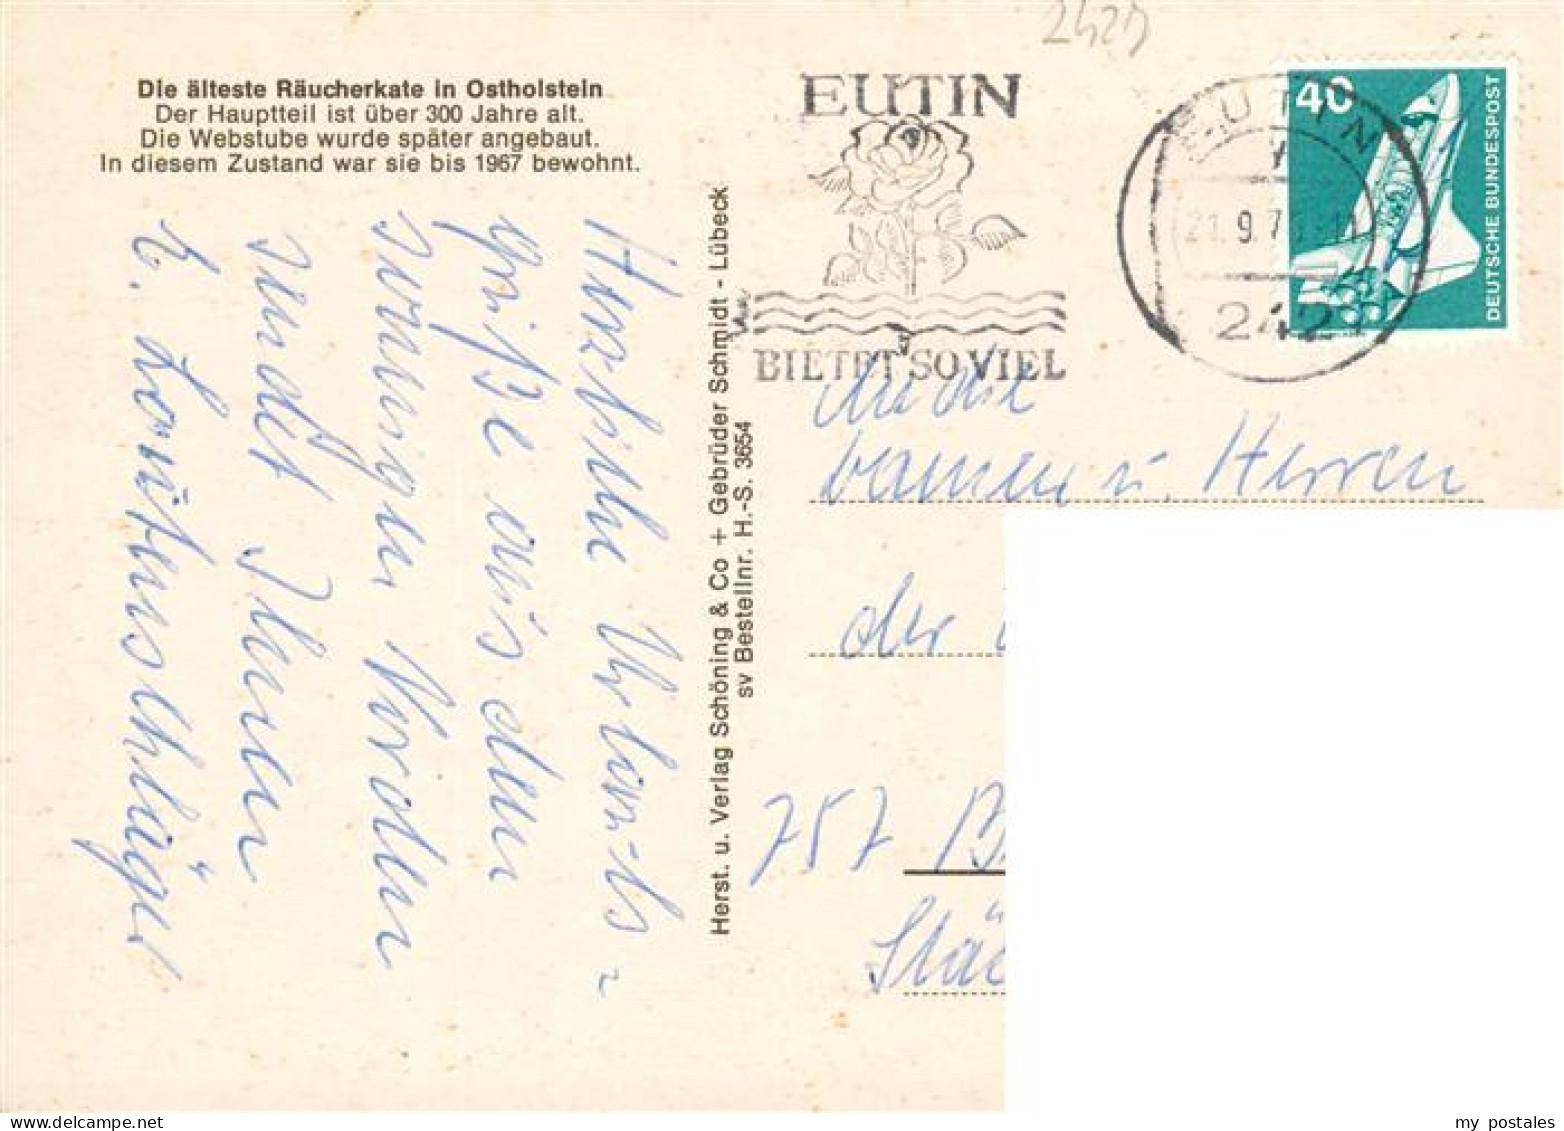 2427
Die älteste Räucherkate in Ostholstein
Der Hauptteil ist über 300 Jahre alt.
Die Webstube wurde später angebaut.
In diesem Zustand war sie bis 1967 bewohnt.
Herzliche Urlaubs-
grüße aus dem
sonnigen Norden
sendet Ihnen
Herst. u. Verlag Schöning & Co + Gebrüder Schmidt - Lübeck
sv Bestellnr. H.-S. 3654
EUTIN
BIETET SO VIEL
EUTIN
21.9.7
242
40
DEUTSCHE BUNDESPOST
An die
Damen u. Herren
der
757 B
Stä
my postales